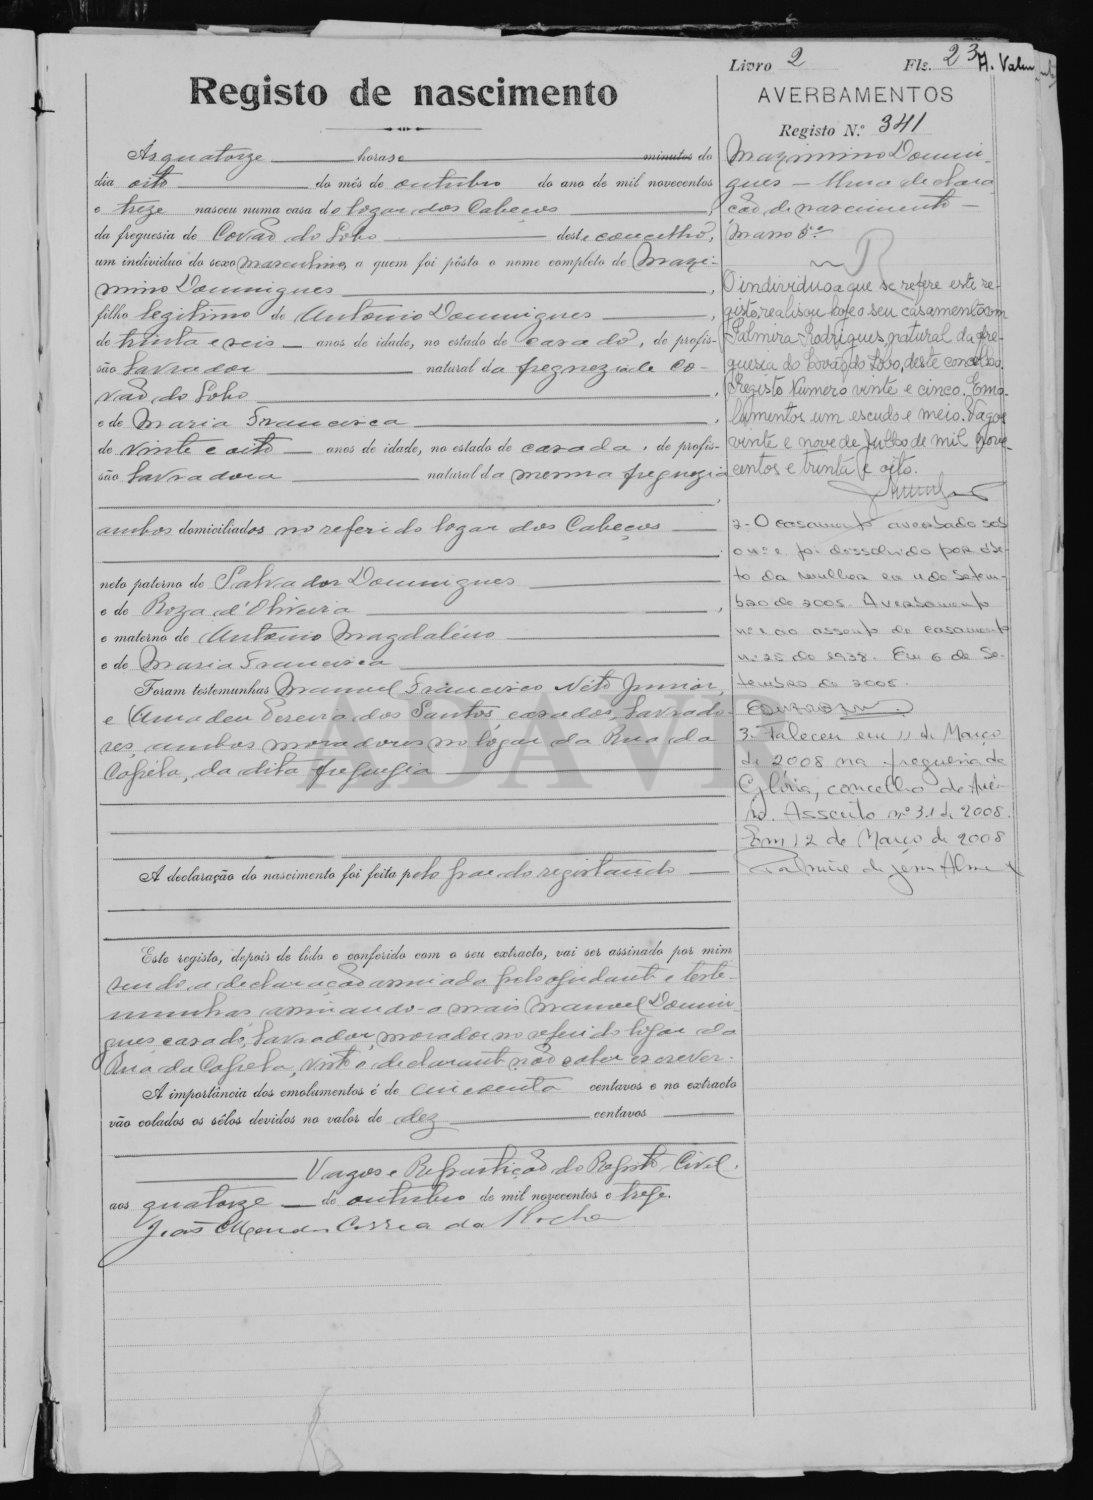 Livro 2 Fls. 23
Registo de nascimento
AVERBAMENTOS
Registo N.º 341
As quatorze horas e minutos do
dia oito do mês de outubro do ano de mil novecentos
e treze nasceu numa casa do logar dos Cabeços,
da freguesia de Covão do Lobo deste concelho,
um individuo do sexo masculino, a quem foi pôsto o nome completo de Maxi-
mino Domingues,
filho legitimo de Antonio Domingues,
de trinta e seis anos de idade, no estado de casado, de profis-
são Lavrador natural da fregnezia de Co-
vão do Lobo,
e de Maria Francisca,
de vinte e oito anos de idade, no estado de casada, de profis-
são Lavradora natural da mesma freguezia,
ambos domiciliados no referido logar dos Cabeços
neto paterno de Salvador Domingues
e de Roza d'Oliveira,
e materno de Antonio Magdaleno
e de Maria Francisca
Foram testemunhas Manuel Francisco Neto Junior,
e Amadeu Pereira dos Santos, casados, Lavrado-
res, ambos moradores no logar da Rua da
Capela, da dita freguezia
A declaração do nascimento foi feita pelo pae do registando
Este registo, depois de lido e conferido com o seu extracto, vai ser assinado por mim
sendo a declaração assinada pelo ajudante e teste-
munhas assinando-a mais Manoel Domin-
gues casado, Lavrador, morador no referido logar da
Rua da Capela, visto o declarante não saber escrever.
A importância dos emolumentos é de cincoenta centavos e no extracto
vão colados os sêlos devidos no valor de dez centavos
Vagos e Repartição do Registo Civil.
aos quatorze de outubro de mil novecentos e treze.
João Mendes Correia da Rocha
Maximino Domin-
gues — Uma declara-
ção de nascimento —
Maço 5.º
O individuo a que se refere este re-
gisto, realisou hoje o seu casamento com
Palmira Rodrigues, natural da fre-
guesia do Covão do Lobo, deste concelho.
Registo Numero vinte e cinco. Emo-
lumentos um escudo e meio. Vagos
vinte e nove de Julho de mil nove-
centos e trinta e oito.
2- O casamento averbado sob
o nº 1 foi dissolvido por óbi-
to da mulher em 4 de Setem-
bro de 2005. Averbamento
nº 1 ao assento de casamento
nº 25 de 1938. Em 6 de Se-
tembro de 2005.
3. Faleceu em 11 de Março
de 2008 na freguesia da
Glória, concelho de Avei-
ro. Assento nº 31 de 2008.
Em 12 de Março de 2008
ADAVR